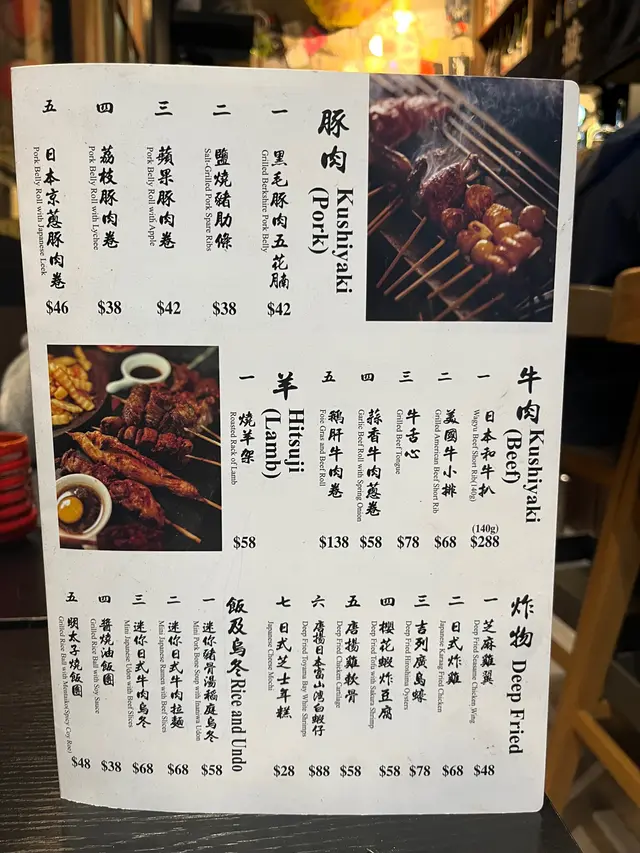 豚肉 Kushiyaki
(Pork)
一 黑毛豚肉五花腩
Grilled Berkshire Pork Belly
$42
二 鹽燒豬肋條
Salt-Grilled Pork Spare Ribs
$38
三 蘋果豚肉卷
Pork Belly Roll with Apple
$42
四 荔枝豚肉卷
Pork Belly Roll with Lychee
$38
五 日本京蔥豚肉卷
Pork Belly Roll with Japanese Leek
$46
牛肉 Kushiyaki
(Beef)
一 日本和牛扒
Wagyu Beef Short Rib(140g)
(140g)
$288
二 美國牛小排
Grilled American Beef Short Rib
$68
三 牛舌心
Grilled Beef Tongue
$78
四 蒜香牛肉蔥卷
Garlic Beef Roll with Spring Onion
$58
五 鵝肝牛肉卷
Foie Gras and Beef Roll
$138
羊 Hitsuji
(Lamb)
一 燒羊架
Roasted Rack of Lamb
$58
炸物 Deep Fried
一 芝麻雞翼
Deep Fried Sesame Chicken Wing
$48
二 日式炸雞
Japanese Karaage Fried Chicken
$68
三 吉列廣島蠔
Deep Fried Hiroshima Oysters
$78
四 櫻花蝦炸豆腐
Deep Fried Tofu with Sakura Shrimp
$58
五 唐揚雞軟骨
Deep Fried Chicken Cartilage
$58
六 唐揚日本富山灣白蝦仔
Deep Fried Toyama Bay White Shrimps
$88
七 日式芝士年糕
Japanese Cheese Mochi
$28
飯及烏冬 Rice and Undo
一 迷你豬骨湯稻庭烏冬
Mini Pork Bone Soup with Inaniwa Udon
$58
二 迷你日式牛肉拉麵
Mini Japanese Ramen with Beef Slices
$68
三 迷你日式牛肉烏冬
Mini Japanese Udon with Beef Slices
$68
四 醬燒油飯團
Grilled Rice Ball with Soy Sauce
$38
五 明太子燒飯團
Grilled Rice Ball with Mentaiko(Spicy Coy Roe)
$48